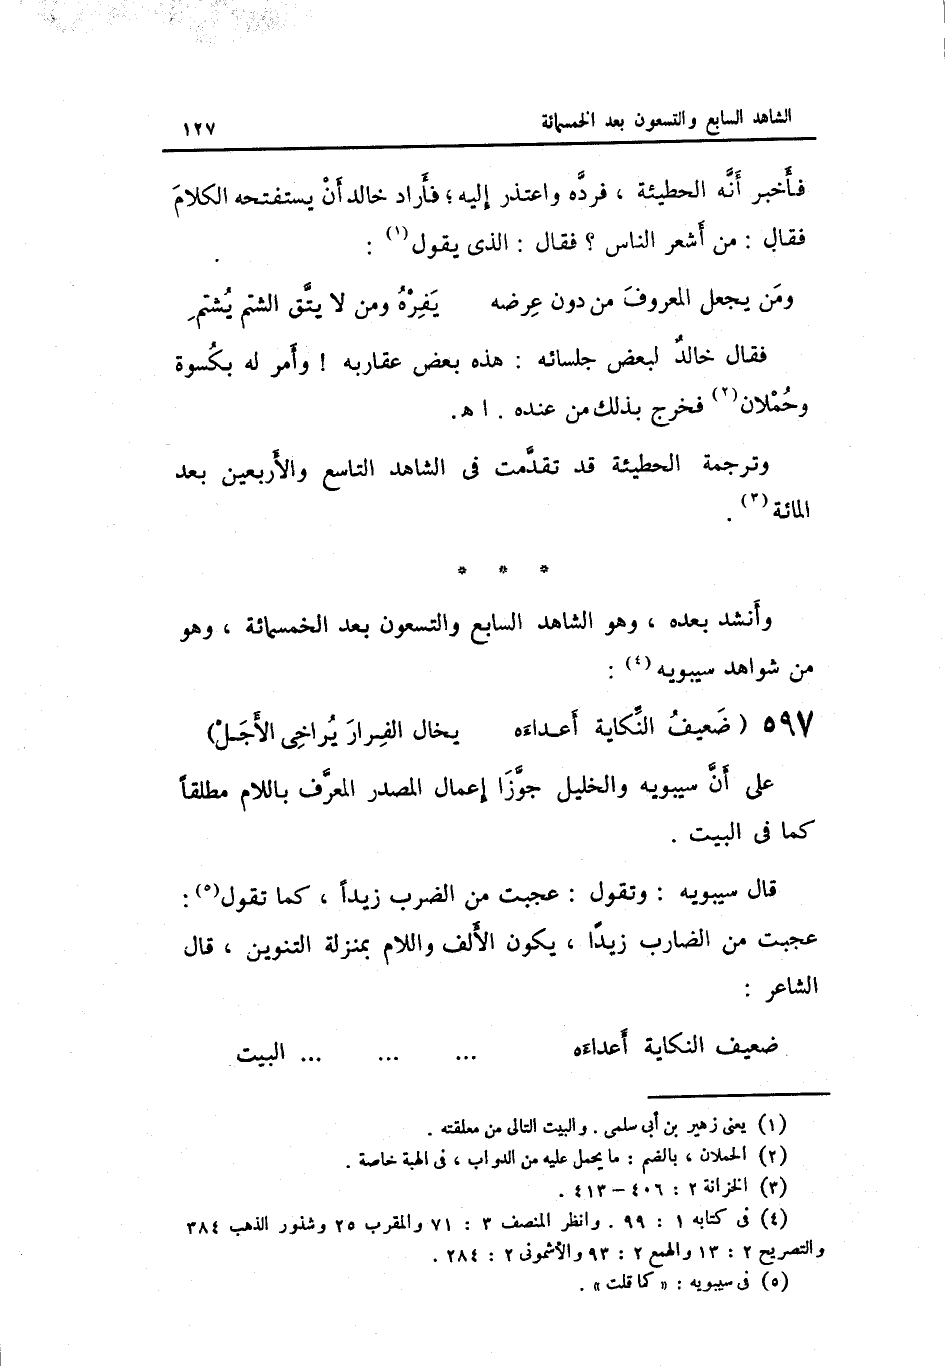 الشاهد السابع والتسعون بعد الخمسمائة ١٢٧
فأَخبر أَنَّه الحطيئة ، فردَّه واعتذر إليه ؛ فأَراد خالد أَنْ يستفتحه الكلامَ
فقال : من أَشعر الناس ؟ فقال : الذى يقول(١) :
ومَن يجعل المعروفَ من دون عِرضه يَفِرْهُ ومن لا يتَّق الشتم يُشتمِ
فقال خالدٌ لبعض جلسائه : هذه بعض عقاربه ! وأَمر له بكُسوة
وحُمْلان(٢) فخرج بذلك من عنده . ا هـ.
وترجمة الحطيئة قد تقدَّمت فى الشاهد التاسع والأَربعين بعد
المائة(٣) .
* * *
وأَنشد بعده ، وهو الشاهد السابع والتسعون بعد الخمسمائة ، وهو
من شواهد سيبويه(٤) :
٥٩٧ ( ضَعيفُ النِّكاية أَعداءَه يخال الفِرارَ يُراخِى الأَجَلْ)
على أَنَّ سيبويه والخليل جوَّزَا إعمال المصدر المعرَّف باللام مطلقاً
كما فى البيت .
قال سيبويه : وتقول : عجبت من الضرب زيداً ، كما تقول(٥) :
عجبت من الضارب زيدًا ، يكون الأَلف واللام بمنزلة التنوين ، قال
الشاعر :
ضعيف النكاية أَعداءَه ... ... ... البيت
(١) يعنى زهير بن أبى سلمى . والبيت التالى من معلقته .
(٢) الحملان ، بالضم : ما يحمل عليه من الدواب ، فى الهبة خاصة .
(٣) الخزانة ٢ : ٤٠٦ – ٤١٣ .
(٤) فى كتابه ١ : ٩٩ . وانظر المنصف ٣ : ٧١ والمقرب ٢٥ وشذور الذهب ٣٨٤
والتصريح ٢ : ١٣ والهمع ٢ : ٩٣ والأشمونى ٢ : ٢٨٤ .
(٥) فى سيبويه : « كما قلت » .